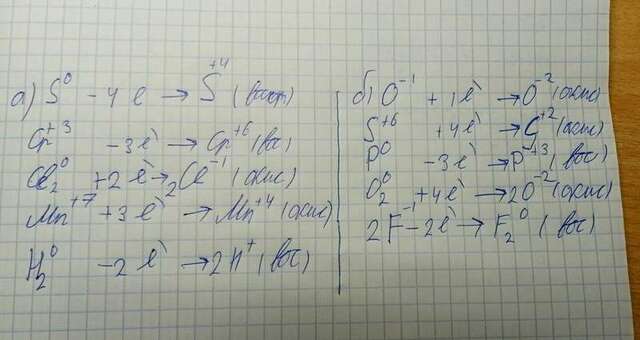 а) S⁰ - 4 e → S⁺⁴ (восст)
Cr⁺³ - 3 e⁻ → Cr⁺⁶ (вос)
Cl₂⁰ + 2 e⁻ → 2 Cl⁻¹ (окис)
Mn⁺⁷ + 3 e⁻ → Mn⁺⁴ (окис)
H₂⁰ - 2 e⁻ → 2 H⁺ (вос)
б) O⁻¹ + 1 e⁻ → O⁻² (окис)
S⁺⁶ + 4 e⁻ → S⁺² (окис)
P⁰ - 3 e⁻ → P⁺³ (вос)
O₂⁰ + 4 e⁻ → 2 O⁻² (окис)
2 F⁻¹ - 2 e⁻ → F₂⁰ (вос)